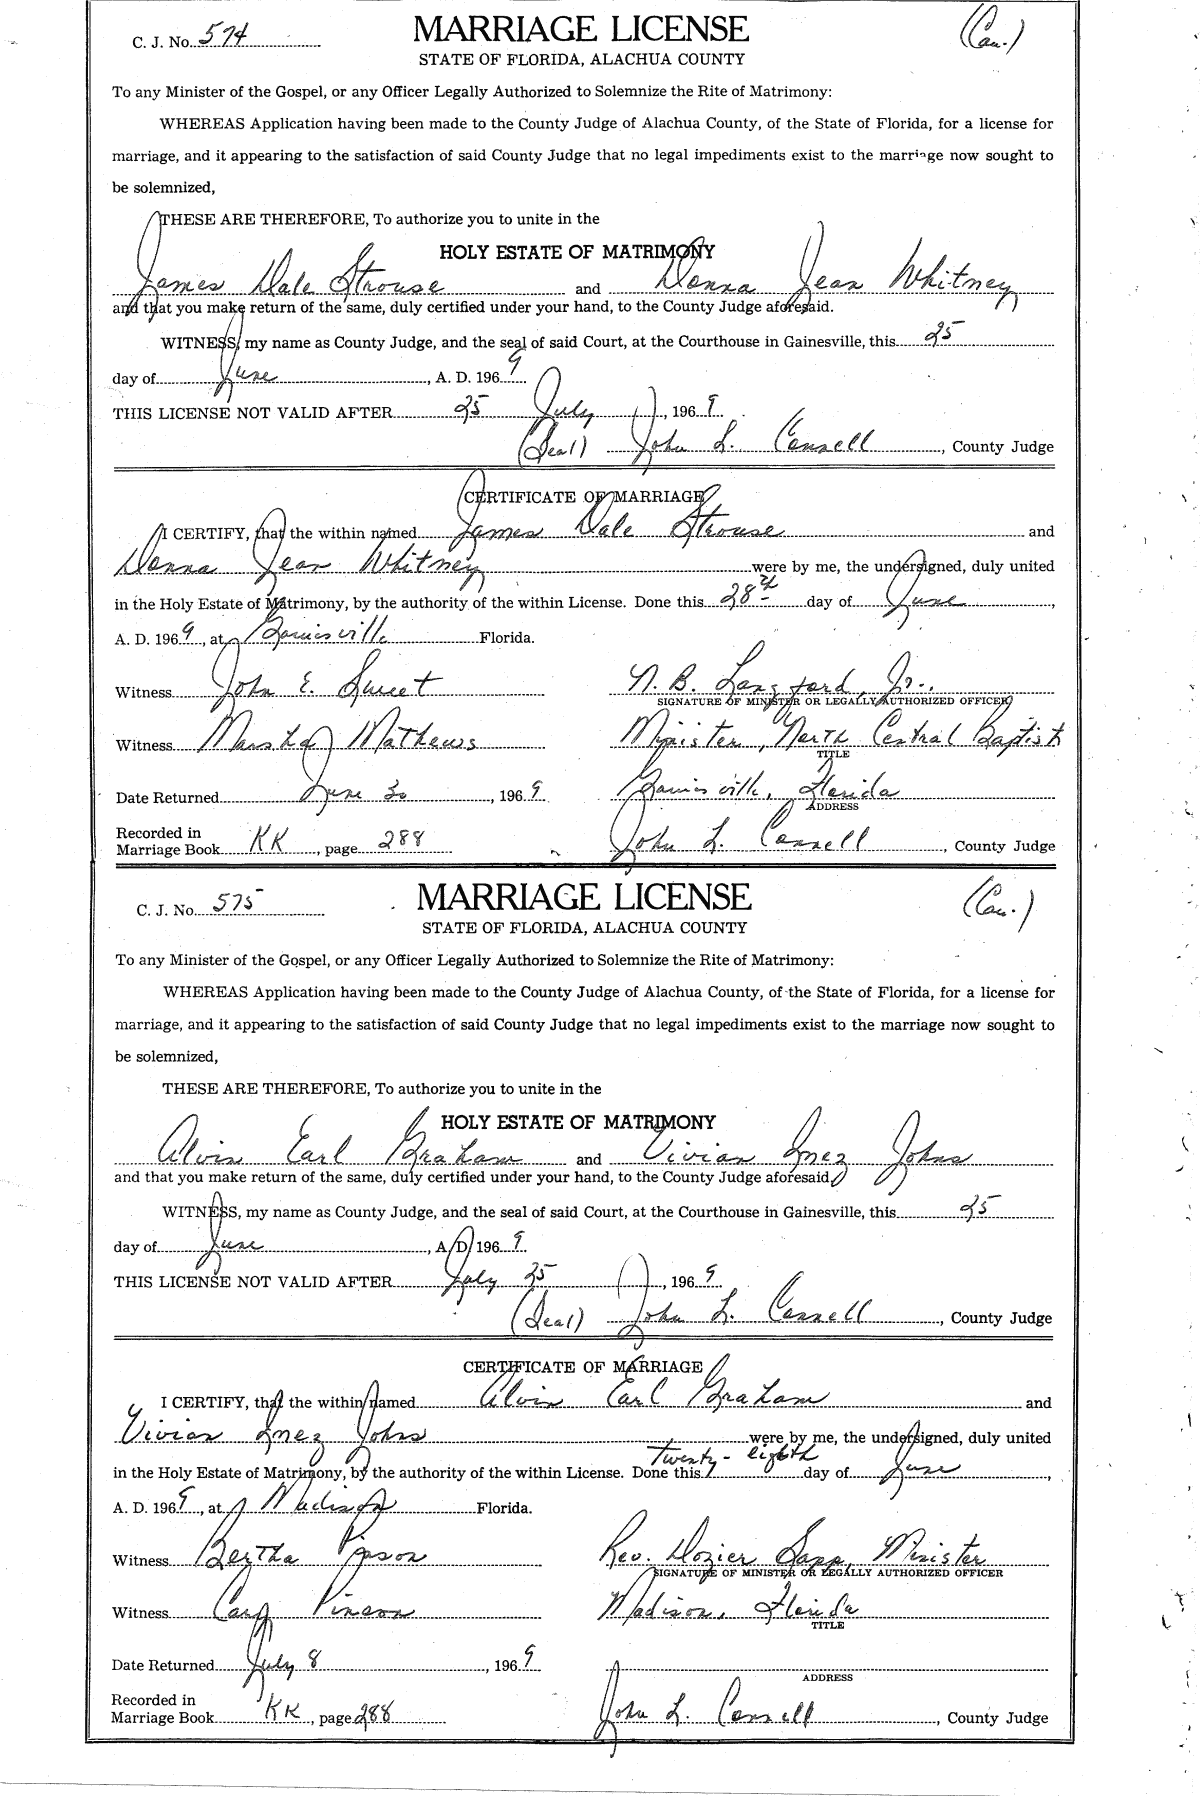 C. J. No. 574 MARRIAGE LICENSE (Cau.)
STATE OF FLORIDA, ALACHUA COUNTY
To any Minister of the Gospel, or any Officer Legally Authorized to Solemnize the Rite of Matrimony:
WHEREAS Application having been made to the County Judge of Alachua County, of the State of Florida, for a license for
marriage, and it appearing to the satisfaction of said County Judge that no legal impediments exist to the marriage now sought to
be solemnized,
THESE ARE THEREFORE, To authorize you to unite in the
HOLY ESTATE OF MATRIMONY
James Dale Strouse and Donna Jean Whitney
and that you make return of the same, duly certified under your hand, to the County Judge aforesaid.
WITNESS, my name as County Judge, and the seal of said Court, at the Courthouse in Gainesville, this 25
day of June, A. D. 1969
THIS LICENSE NOT VALID AFTER 25 July, 1969
(Seal) John L. Connell, County Judge
CERTIFICATE OF MARRIAGE
I CERTIFY, that the within named James Dale Strouse and
Donna Jean Whitney were by me, the undersigned, duly united
in the Holy Estate of Matrimony, by the authority of the within License. Done this 28th day of June,
A. D. 1969, at Gainesville Florida.
Witness John E. Sweet N. B. Langford, Jr.,
SIGNATURE OF MINISTER OR LEGALLY AUTHORIZED OFFICER
Witness Marsha Mathews Minister, North Central Baptist
TITLE
Date Returned June 30, 1969 Gainesville, Florida
ADDRESS
Recorded in
Marriage Book KK, page 288 John L. Connell, County Judge
C. J. No. 575 MARRIAGE LICENSE (Cau.)
STATE OF FLORIDA, ALACHUA COUNTY
To any Minister of the Gospel, or any Officer Legally Authorized to Solemnize the Rite of Matrimony:
WHEREAS Application having been made to the County Judge of Alachua County, of the State of Florida, for a license for
marriage, and it appearing to the satisfaction of said County Judge that no legal impediments exist to the marriage now sought to
be solemnized,
THESE ARE THEREFORE, To authorize you to unite in the
HOLY ESTATE OF MATRIMONY
Alvin Earl Graham and Vivian Inez Johns
and that you make return of the same, duly certified under your hand, to the County Judge aforesaid.
WITNESS, my name as County Judge, and the seal of said Court, at the Courthouse in Gainesville, this 25
day of June, A. D. 1969
THIS LICENSE NOT VALID AFTER July 25, 1969
(Seal) John L. Connell, County Judge
CERTIFICATE OF MARRIAGE
I CERTIFY, that the within named Alvin Earl Graham and
Vivian Inez Johns were by me, the undersigned, duly united
in the Holy Estate of Matrimony, by the authority of the within License. Done this Twenty-eighth day of June,
A. D. 1969, at Madison Florida.
Witness Bertha Rev. Dozier Sapp, Minister
SIGNATURE OF MINISTER OR LEGALLY AUTHORIZED OFFICER
Witness Pinson Madison, Florida
TITLE
Date Returned July 8, 1969
ADDRESS
Recorded in
Marriage Book KK, page 288 John L. Connell, County Judge